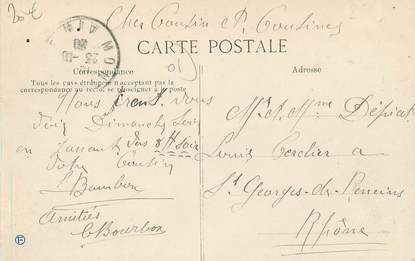 20€
Cher Cousin et Cousine
CARTE POSTALE
Correspondance
Tous les pays étrangers n'acceptant pas la
correspondance au recto, se renseigner à la poste
Adresse
Nous iront vous
voir Dimanche soir
en passant des 8H soir
Votre Cousin
Amitiés
C Bourbon
Mr et Mme Dépiat
Louis Cerclier a
St Georges-de-Reneins
Rhône